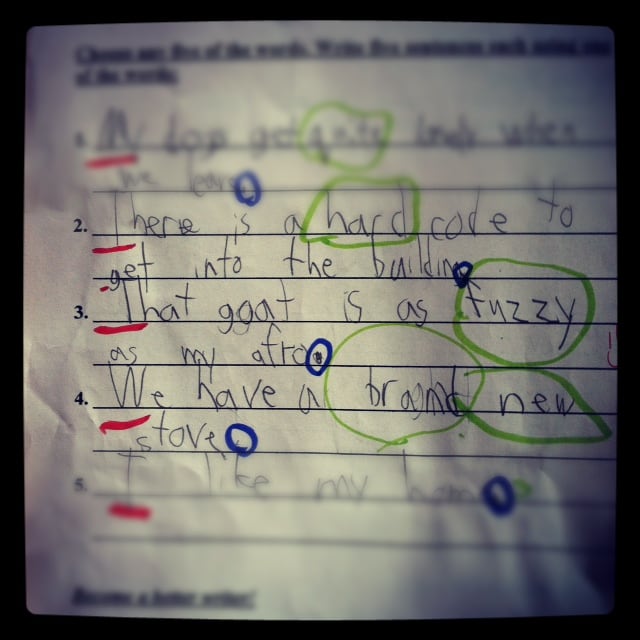 Choose any five of the words. Write five sentences each using one
of the words.
1. My dogs get quite lonely when
we leave.
2. There is a hard code to
get into the building.
3. That goat is as fuzzy
as my afro.
4. We have a brand new
stove.
5. I like my
Become a better writer!